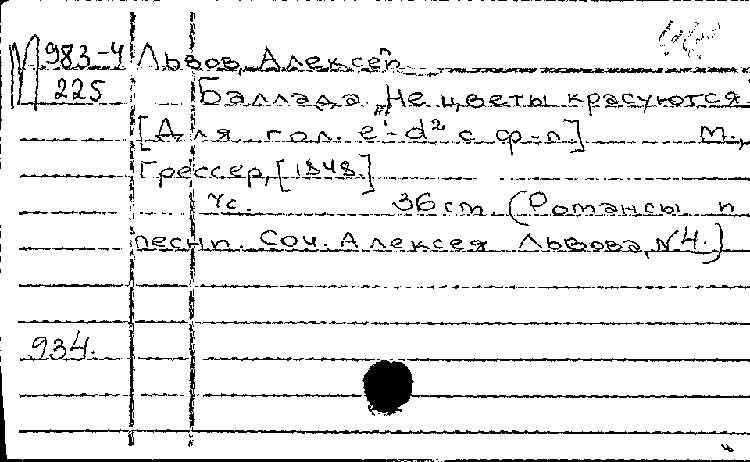 М 983-4 Львов, Алексей
225 Баллада „Не цветы красуются
[Для гол. e'-d² с ф-п.] М.,
Грессер, [1848.]
7с. 36 cm. (Романсы и
песни. Соч. Алексея Львова, №4.)
934.